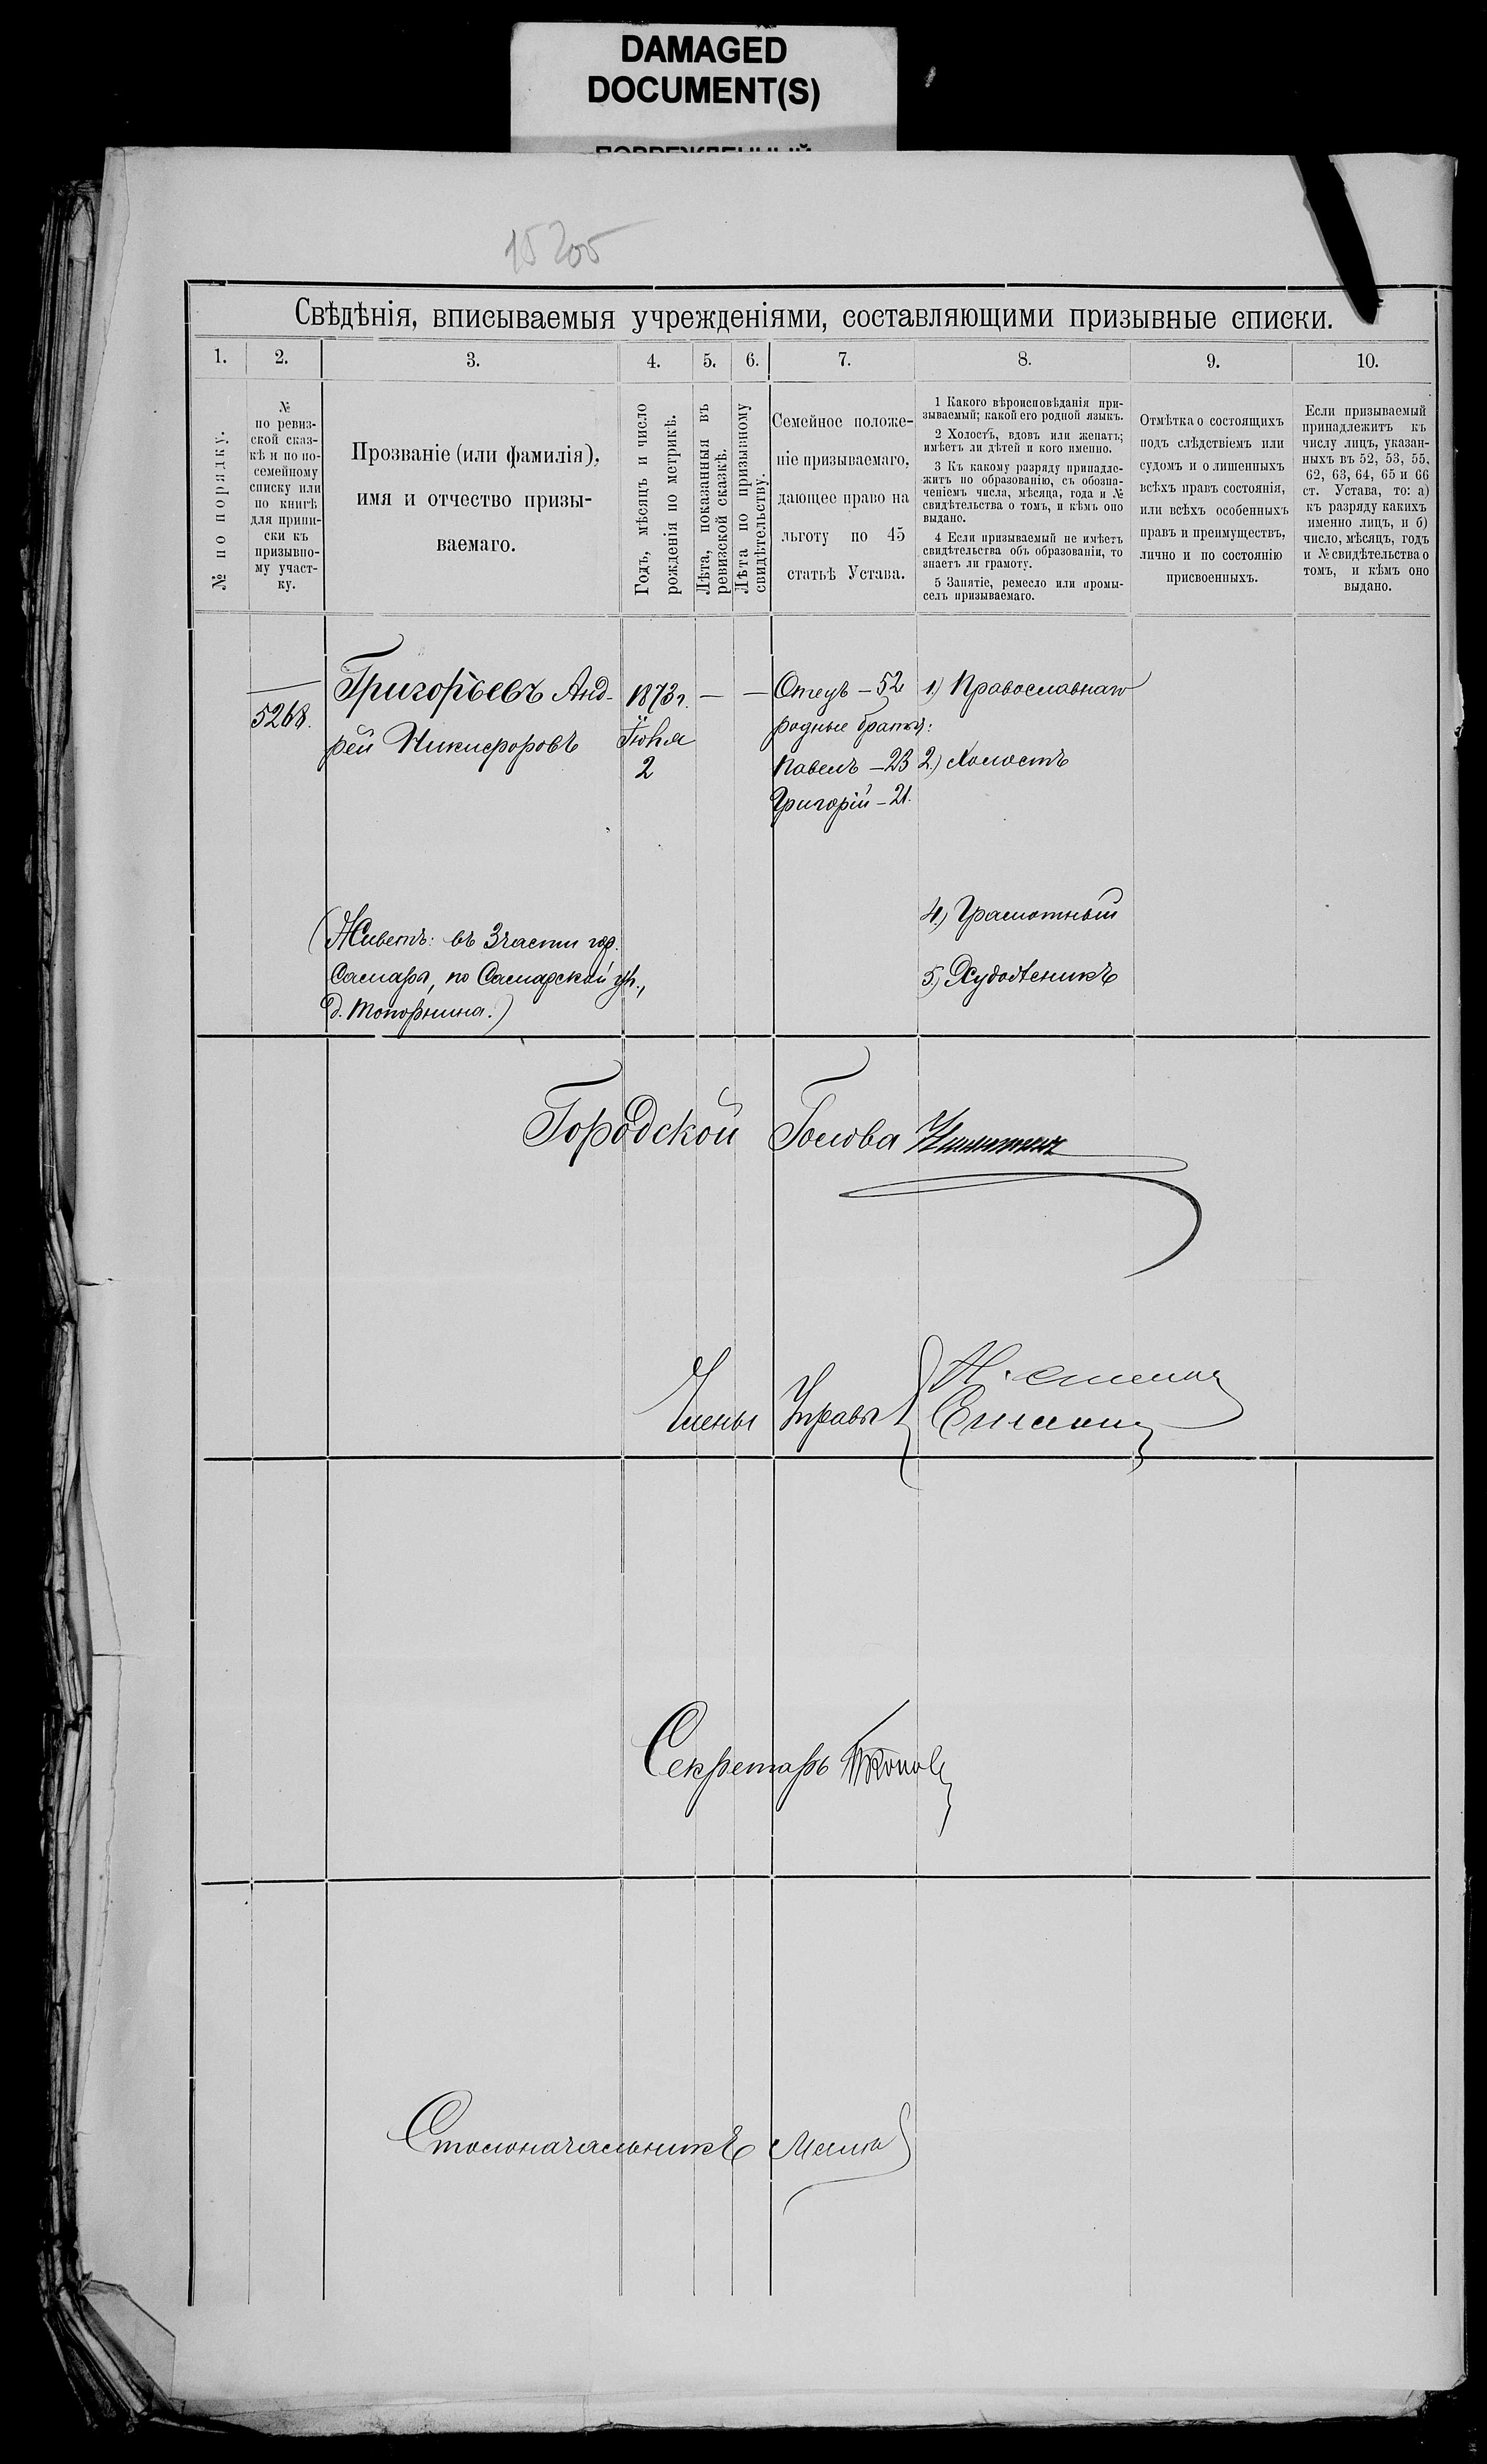 DAMAGED
DOCUMENT(S)
ПОВРЕЖДЕННЫЙ
15205
Свѣдѣнія, вписываемыя учрежденіями, составляющими призывные списки.
1. 2. 3. 4. 5. 6. 7. 8. 9. 10.
№ по порядку.
№
по ревиз-
ской сказ-
кѣ и по по-
семейному
списку или
по книгѣ
для припи-
ски къ
призывно-
му участ-
ку.
Прозваніе (или фамилія),
имя и отчество призы-
ваемаго.
Годъ, мѣсяцъ и число
рожденія по метрикѣ.
Лѣта, показанныя въ
ревизской сказкѣ.
Лѣта по призывному
свидѣтельству.
Семейное положе-
ніе призываемаго,
дающее право на
льготу по 45
статьѣ Устава.
1 Какого вѣроисповѣданія при-
зываемый; какой его родной языкъ.
2 Холостъ, вдовъ или женатъ;
имѣетъ ли дѣтей и кого именно.
3 Къ какому разряду принадле-
житъ по образованію, съ обозна-
ченіемъ числа, мѣсяца, года и №
свидѣтельства о томъ, и кѣмъ оно
выдано.
4 Если призываемый не имѣетъ
свидѣтельства объ образованіи, то
знаетъ ли грамоту.
5 Занятіе, ремесло или промы-
селъ призываемаго.
Отмѣтка о состоящихъ
подъ слѣдствіемъ или
судомъ и о лишенныхъ
всѣхъ правъ состоянія,
или всѣхъ особенныхъ
правъ и преимуществъ,
лично и по состоянію
присвоенныхъ.
Если призываемый
принадлежитъ къ
числу лицъ, указан-
ныхъ въ 52, 53, 55,
62, 63, 64, 65 и 66
ст. Устава, то: а)
къ разряду какихъ
именно лицъ, и б)
число, мѣсяцъ, годъ
и № свидѣтельства о
томъ, и кѣмъ оно
выдано.
5268.
Григорьевъ Анд-
рей Никифоровъ
1873 г.
Іюня
2
—
—
Отецъ – 52
родные братья:
Павелъ – 23
Григорій – 21.
1) Православнаго
2.) Холостъ
4.) Грамотный
5.) Художникъ
(Живетъ: въ 3 части гор.
Самары, по Самарской ул.,
д. Топорнина.)
Городской Голова
Члены Управы
Секретарь
Столоначальникъ